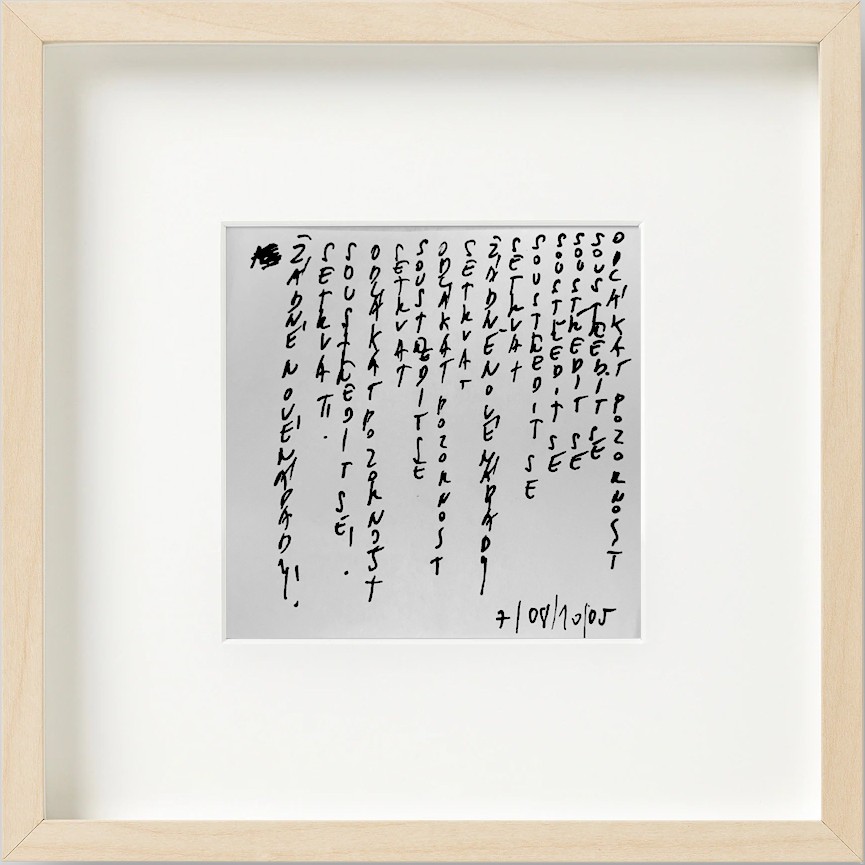 ŽÁDNÉ NOVÉ NÁPADY!
SETRVAT!
SOUSTŘEDIT SE!
ODLÁKAT POZORNOST
SETRVAT
SOUSTŘEDIT SE
ODLÁKAT POZORNOST
SETRVAT
ŽÁDNÉ NOVÉ NÁPADY
SETRVAT
SOUSTŘEDIT SE
SOUSTŘEDIT SE
SOUSTŘEDIT SE
SOUSTŘEDIT SE
ODLÁKAT POZORNOST
7/08/10/05